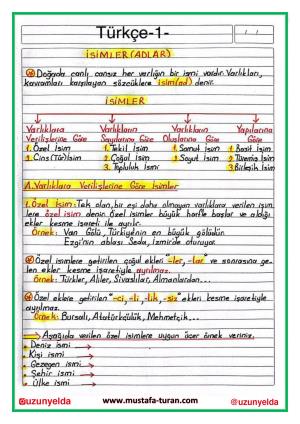 Türkçe-1-
İSİMLER(ADLAR)
Doğada canlı cansız her varlığın bir ismi vardır. Varlıkları,
kavramları karşılayan sözcüklere isim(ad) denir.
İSİMLER
Varlıklara Verilişlerine Göre
1. Özel İsim
2. Cins(Tür)İsim
Varlıkların Sayılarına Göre
1. Tekil İsim
2. Çoğul İsim
3. Topluluk İsmi
Varlıkların Oluşlarına Göre
1. Somut İsim
2. Soyut İsim
Yapılarına Göre
1 Basit İsim
2 Türemiş İsim
3 Birleşik İsim
A. Varlıklara Verilişlerine Göre İsimler
1. Özel İsim: Tek olan, bir eşi daha olmayan varlıklara verilen isim
lere özel isim denir. Özel isimler büyük harfle başlar ve aldığı
ekler kesme işareti ile ayrılır.
Örnek: Van Gölü, Türkiye'nin en büyük gölüdür.
Ezgi'nin ablası Seda, İzmir'de oturuyor.
Özel isimlere getirilen çoğul ekleri "-ler, -lar" ve sonrasına ge-
len ekler kesme işaretiyle ayrılmaz.
Örnek: Türkler, Aliler, Sivaslılar, Almanlardan...
Özel eklere getirilen "-ci, -li, -lik, -siz" ekleri kesme işaretiyle
ayrılmaz.
Örnek: Bursalı, Atatürkçülük, Mehmetçik...
Aşağıda verilen özel isimlere uygun üçer örnek veriniz.
Deniz ismi
Kişi ismi
Gezegen ismi
Şehir ismi
Ülke ismi
@uzunyelda
www.mustafa-turan.com
@uzunyelda